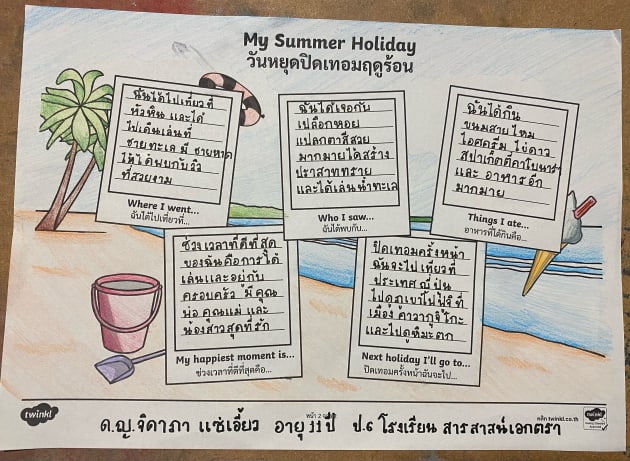 My Summer Holiday
วันหยุดปิดเทอมฤดูร้อน
ฉันได้ไปเที่ยวที่
หัวหิน และได้
ไปเดินเล่นที่
ชายทะเล มี ชายหาด
ได้พบกับวิว
ที่สวยงาม
Where I went...
ฉันได้ไปเที่ยวที่...
ฉันได้เจอกับ
เปลือกหอย
แปลกตาสีสวย
มากมายได้สร้าง
ปราสาททราย
และได้เล่นน้ำทะเล
Who I saw...
ฉันได้พบกับ...
ฉันได้กิน
ขนมสายไหม
ไอศครีม ไข่ดาว
สปาเก็ตตี้คาโบนาร่า
และ อาหารอีก
มากมาย
Things I ate...
อาหารที่ได้กินคือ...
ช่วงเวลาที่ดีที่สุด
ของฉันคือการได้
เล่นและอยู่กับ
ครอบครัว มีคุณ
พ่อ คุณแม่ และ
น้องสาวสุดที่รัก
My happiest moment is...
ช่วงเวลาที่ดีที่สุดคือ...
ปิดเทอมครั้งหน้า
ฉันจะไปเที่ยวที่
ประเทศญี่ปุ่น
ไปดูภูเขาไฟฟูจิที่
เมือง คาวากูจิโกะ
และไปดูหิมะตก
Next holiday I'll go to...
ปิดเทอมครั้งหน้าฉันจะไป...
twinkl
หน้า 2
คลิก twinkl.co.th
twinkl
ด.ญ.จิดาภา แซ่เอี้ยว อายุ 11 ปี ป.6 โรงเรียน สารสาสน์เอกตรา